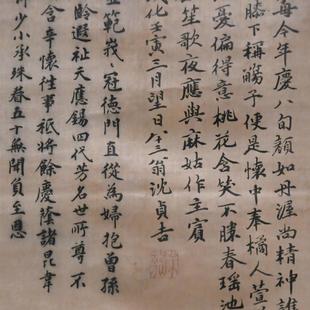 母今年慶八旬顏如丹渥尚精神誰
膝下稱觴子便是懷中奉橘人萱
憂偏得意桃花含笑不勝春瑤池
笙歌夜應與麻姑作主賓
化壬寅三月望日八十三翁沈貞吉
範峩冠德門直從為婦抱曾孫
齡遐祉天應錫四代芳名世所尊不
含辛懷往事祇將餘慶蔭諸昆韋
少小承珠眷五十無聞負至恩